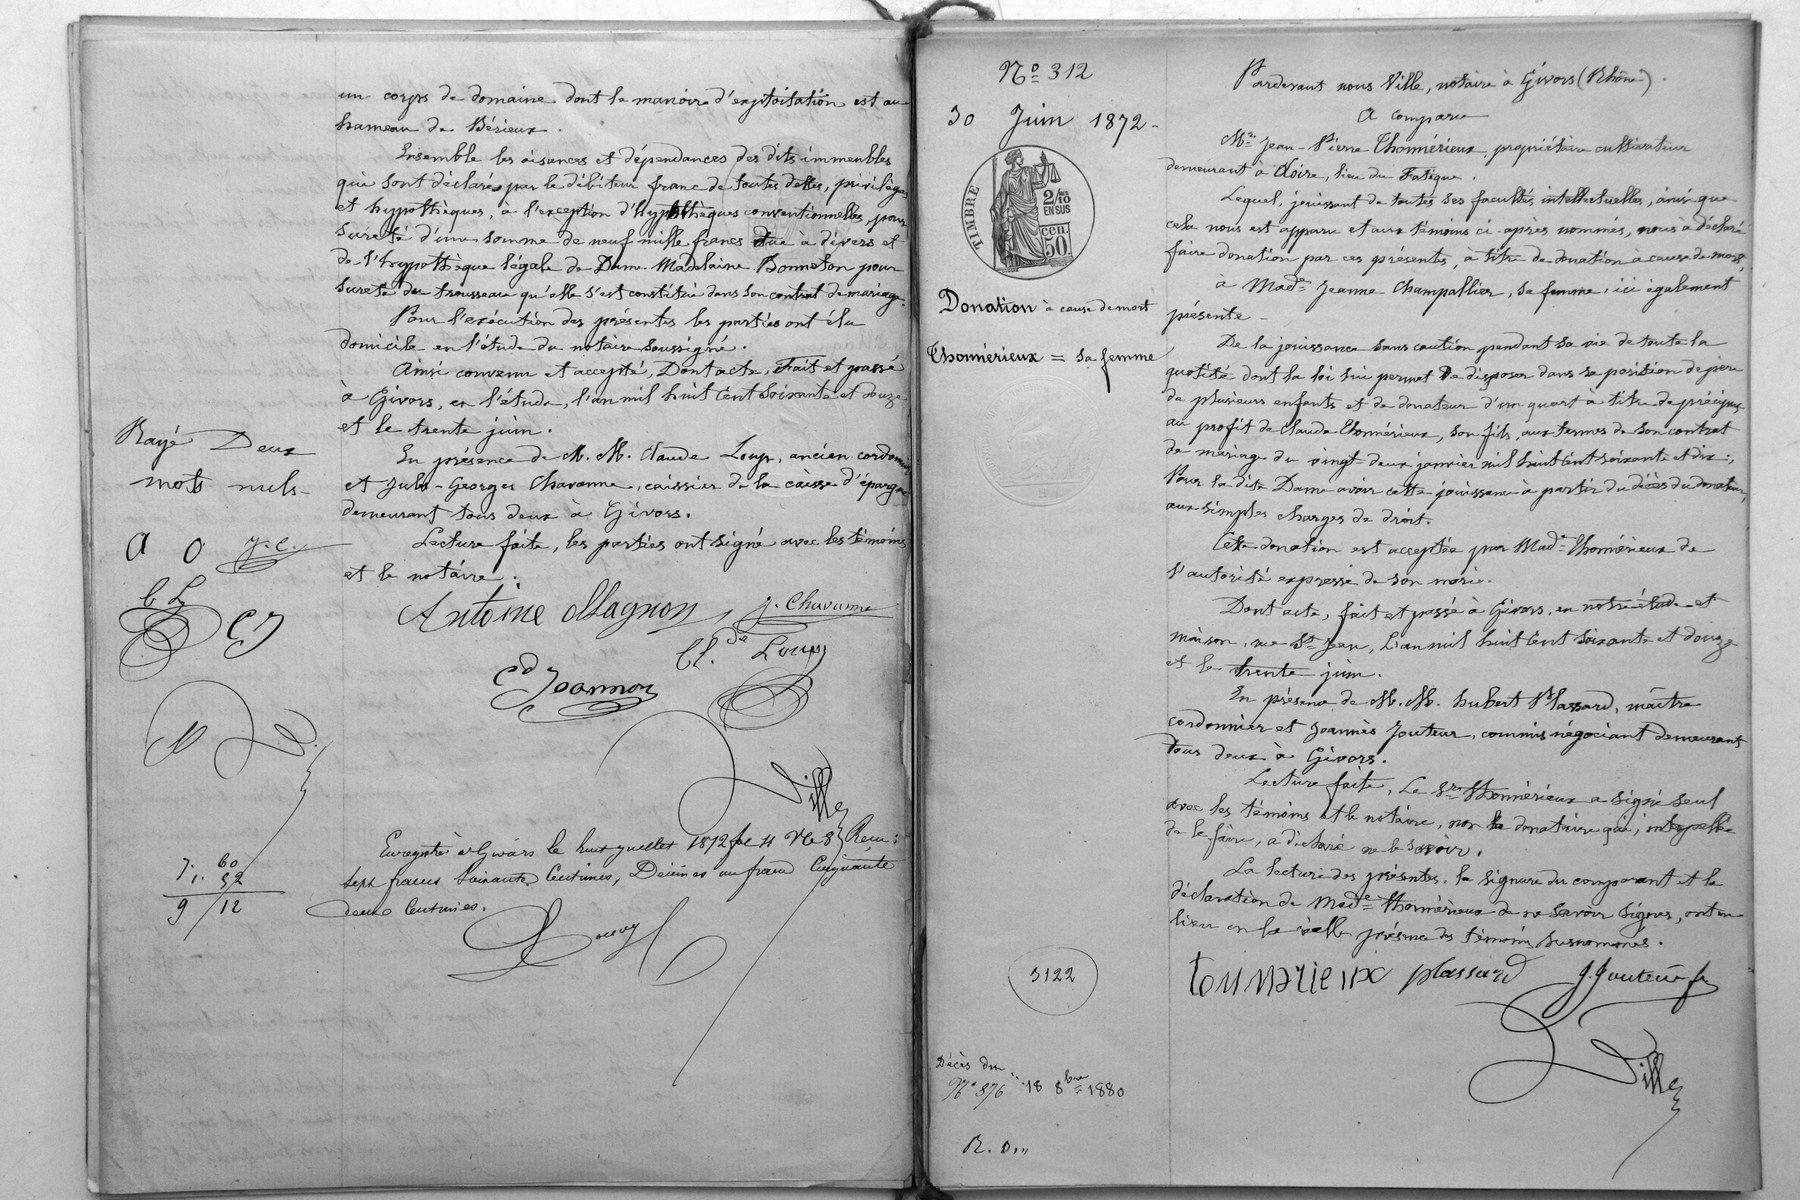 un corps de domaine dont le manoir d'exploitation est au
hameau de Bésieux.
Ensemble les aisances et dépendances des dits immeubles
qui sont déclarés par le débiteur franc de toutes dettes, privilèges
et hypothèques, à l'exception d'hypothèques conventionnelles, pour
sureté d'une somme de neuf mille francs due à divers et
de l'hypothèque légale de Dame Madelaine Bonneton pour
sureté du trousseau qu'elle s'est constituée dans son contrat de mariage.
Pour l'exécution des présentes les parties ont élu
domicile en l'étude du notaire soussigné.
Ainsi convenu et accepté, Dont acte, Fait et passé
à Givors, en l'étude, l'an mil huit cent soixante et douze
et le trente juin.
En présence de M. M. Claude Loup, ancien cordonnier
et Jules-Georges Chavanne, caissier de la caisse d'épargne
demeurant tous deux à Givors.
Lecture faite, les parties ont signé avec les témoins
et le notaire.
Rayé Deux
mots nuls-
A O J. C.
C J
Antoine Magnon, J. Chavanne
Cl.de Loup
Cd Joannon
Ville
Enregistré à Givors le huit juillet 1872 fol 11 Vo C 8 Reçu :
sept francs soixante Centimes, Décimes un franc Cinquante
deux Centimes.
7. 60
1. 52
9 / 12
No 312
30 Juin 1872-
TIMBRE
2/10
EN SUS
50 cen
Donation à cause de mort
Thomérieux = sa femme
3122
Décès du
No 876 18 8bre 1880
Pardevant nous Ville, notaire à Givors (Rhône).
A comparu
Mr Jean-Pierre Thomérieux, propriétaire cultivateur
demeurant à Loire, lieu du Fatigue.
Lequel, jouissant de toutes ses facultés intellectuelles, ainsi que
cela nous est apparu et aux témoins ci-après nommés, nous a déclaré
faire donation par ces présentes, à titre de donation à cause de mort,
à Made Jeanne Champallier, sa femme, ici également
présente-
De la jouissance sans caution pendant sa vie de toute la
quotité dont la loi lui permet de disposer dans sa position de père
de plusieurs enfants et de donateur d'un quart à titre de préciput
au profit de Claude Thomérieux, son fils, aux termes de son contrat
de mariage du vingt-deux janvier mil huit cent soixante et dix;
Pour la dite Dame avoir cette jouissance à partir du décès du donateur,
aux simples charges de droit.
Cette donation est acceptée par Made Thomérieux de
l'autorité expresse de son mari.
Dont acte, fait et passé à Givors, en notre étude et
maison, rue St Jean, L'an mil huit cent soixante et douze
et le trente juin.
En présence de M. M. hubert Plassard, maître
cordonnier et Joannès Jouteur, commis négociant demeurant
tous deux à Givors.
Lecture faite, Le Sr Thomérieux a signé seul
avec les témoins et le notaire, non la donataire qui, interpellée
de le faire, a déclaré ne le savoir.
La lecture des présentes, la signure du comparant et la
déclaration de Made Thomérieux de ne savoir signer, ont eu
lieu en la réelle présence des témoins susnommés.
toumerieux plassard J. Jouteur
Ville